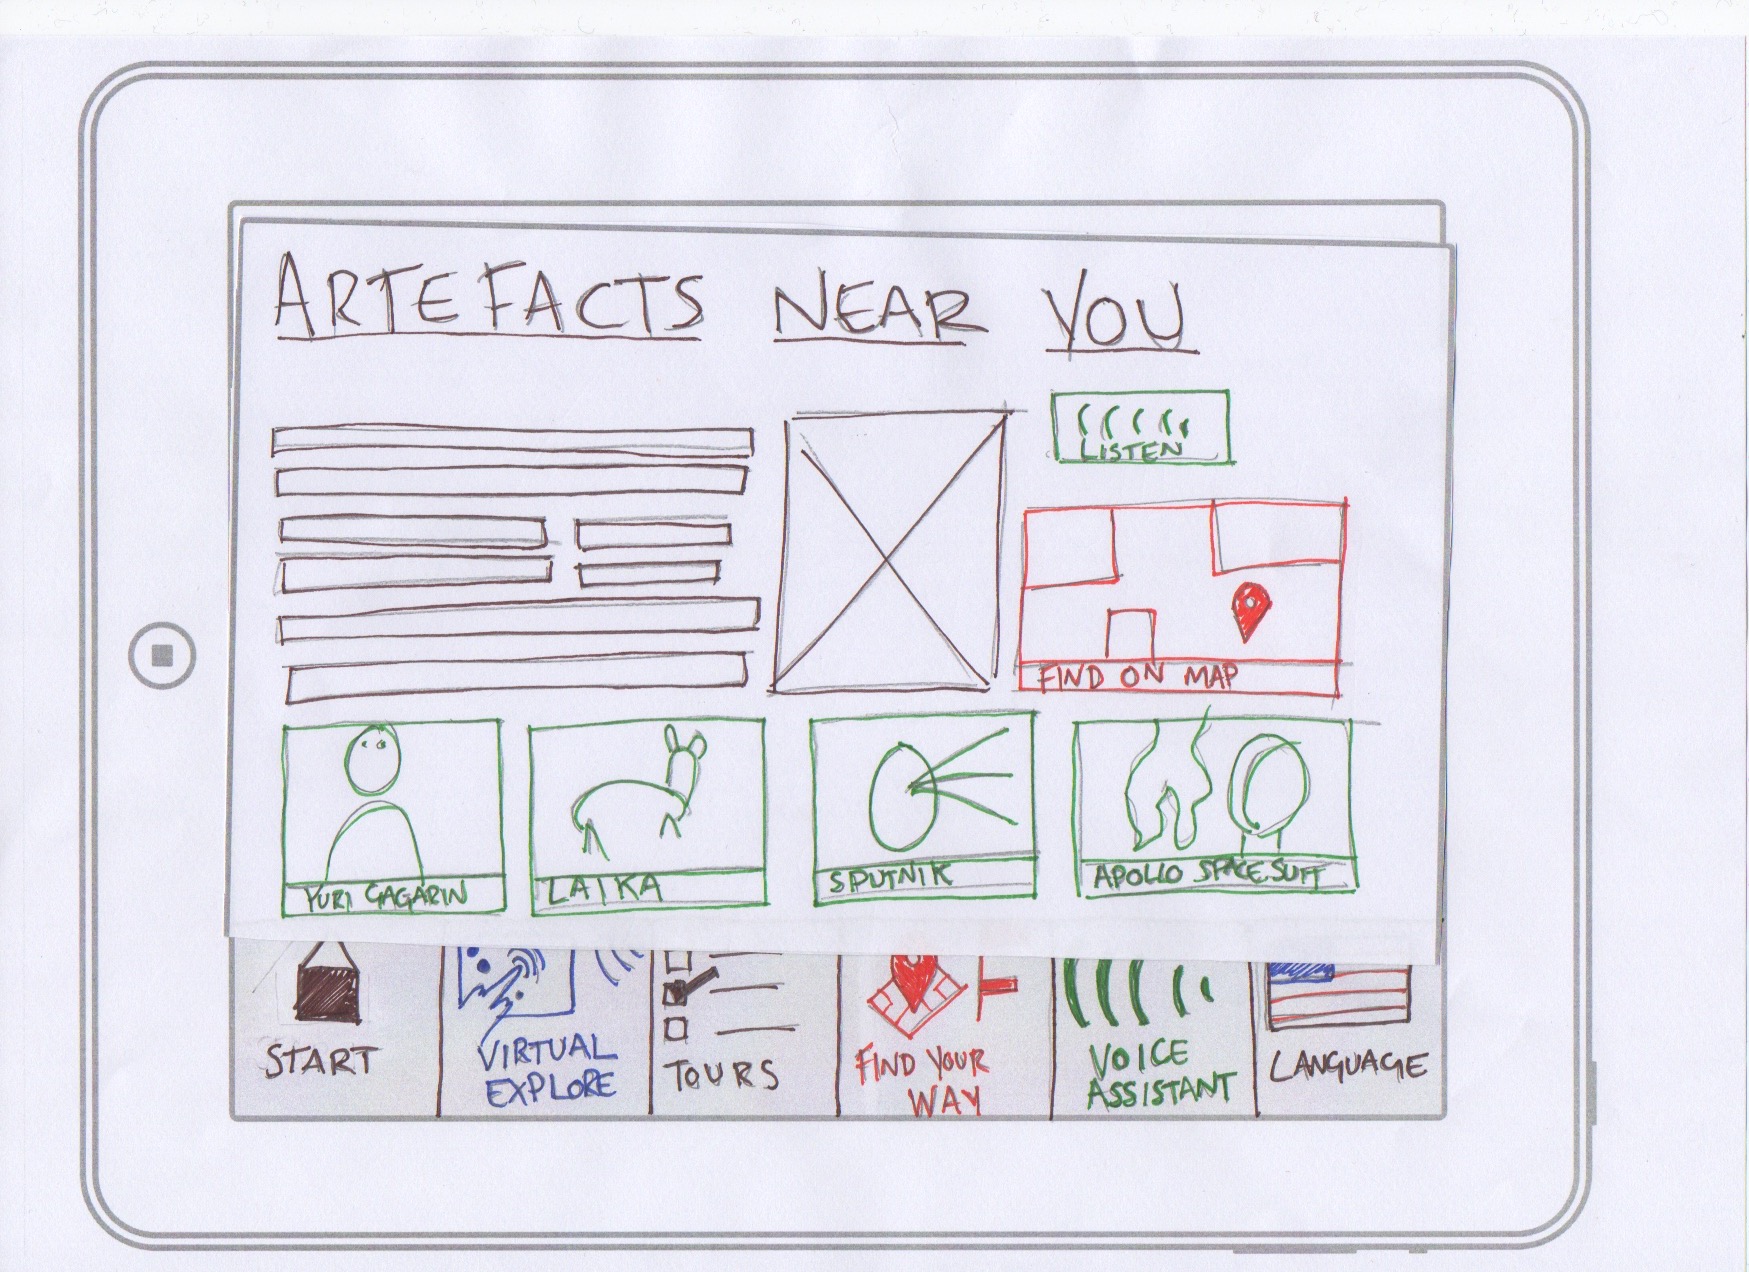 ARTEFACTS NEAR YOU
LISTEN
FIND ON MAP
YURI GAGARIN
LAIKA
SPUTNIK
APOLLO SPACE SUIT
START
VIRTUAL
EXPLORE
TOURS
FIND YOUR
WAY
VOICE
ASSISTANT
LANGUAGE